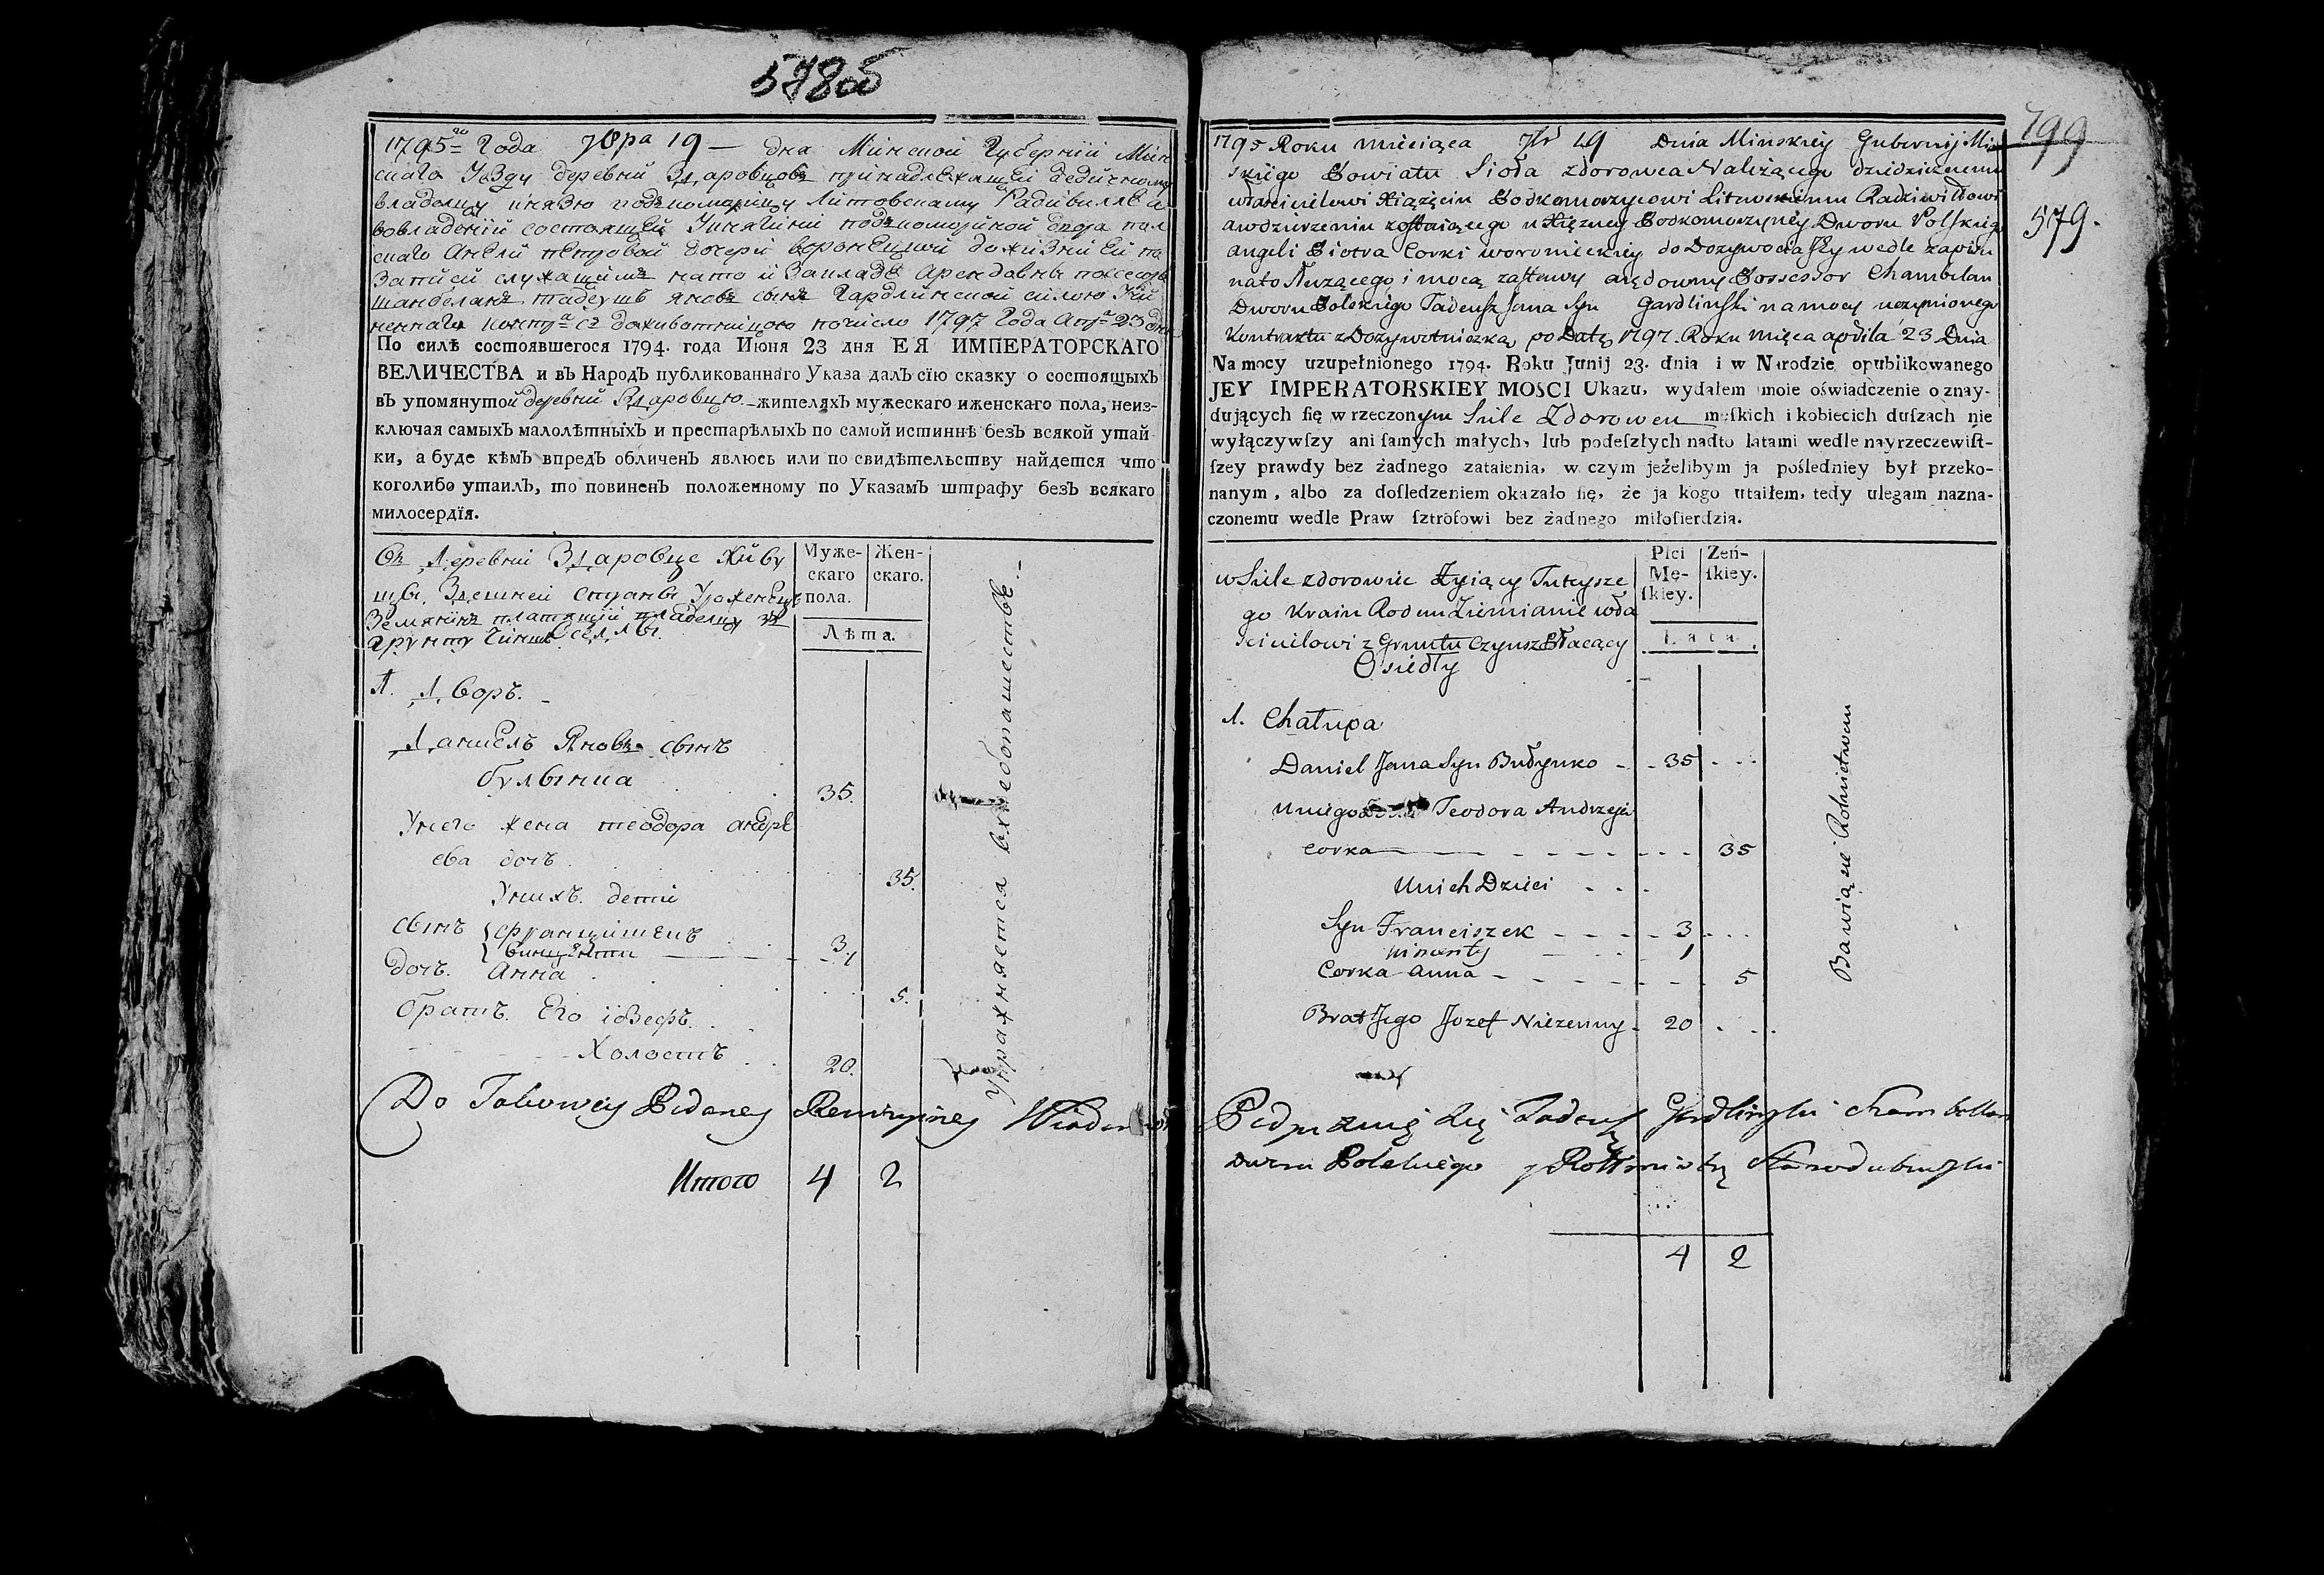 578об
1795го Года 7бра 19 — дня Минской Губернїи Мин
скаго Уѣзду деревни Здаровцовъ принадлежащей дедичному
владельцу князю подкоморицу Литовскому Радивиллѣ а
вовладенїи состоящей Укнягини подкоморинной двора пол
скаго Анели Петровой дочери до жизни Ей по
записи служащимъ на то и арендовны
шанбелянъ тадеушъ яновъ сынъ Гардлинской силою учи
ненного съ доживотницою по число 1797 Года Апр 23 дня
По силѣ состоявшегося 1794. года Июня 23 дня ЕЯ ИМПЕРАТОРСКАГО
ВЕЛИЧЕСТВА и въ НародЪ публикованнаго Указа далЪ сїю сказку о состоящыхЪ
въ упомянутой деревни Здаровцю. жителяхЪ мужескаго иженскаго пола, неиз-
ключая самыхЪ малолѣтныхЪ и престарѣлыхЪ по самой истиннѣ безЪ всякой утай
ки, а буде кѣмЪ впредЪ обличенЪ явлюсь или по свидѣтельству найдется что
коголибо утаилЪ, то повиненЪ положенному по УказамЪ штрафу безЪ всякаго
милосердїя.
Въ Деревни Здаровце Живу
щы. Здешней страны Уроженецъ
Земянинъ платящїй владелцу за
грунту Чиншъ Оселлы.
Муже-
скаго
пола.
Жен-
скаго.
Лѣта.
1. Дворъ.
Даниелъ Яновъ сынъ
булынка 35.
Унего жена теодора андре
ева доч 35.
Унихъ. дети
сынъ францишекъ 3
винцентии 1
дочъ. Анна 5.
братъ. Его іозефъ.
Холостъ 20.
Упражняется вхлебопашестве. -
Do Takowey Podaney Rewizyiney
Итого 4 2
799
579.
1795 Roku miesiąca 7br 19 Dnia Minskiey Gubernij Min
skiego Powiatu Sioła Zdorowca Należącego dziedzicznemu
właścicielowi Xiążęciu Podkomorzycowi Litewskiemu Radziwiłłowi
awdzierzeniu zostaiącego u Xiężney Podkomorzyney Dworu Polskiego
angeli Piotra Corki woronieckiey do Dożywocia Jey wedle zapisu
nato służącego i mocą zastawy arędowny Possessor Chambelan
Dworu Polskiego Tadeusz Jana Syn Gardlinski na mocy uczynionego
Kontraktu z Dożywotniczką po Datę 1797. Roku Mięca apryla 23 Dnia
Na mocy uzupełnionego 1794. Roku Junij 23. dnia i w Narodzie opublikowanego
JEY IMPERATORSKIEY MOSCI Ukazu, wydałem moie oświadczenie o znay-
dujących ſię w rzeczonym Siele Zdorowcu męſkich i kobiecich duſzach nie
wyłączywſzy ani ſamych małych, lub podeſzłych nadto latami wedle nayrzeczewiſt-
ſzey prawdy bez żadnego zataienia, w czym jeżelibym ja poźledniey był przeko-
nanym, albo za doſledzeniem okazało ſię, że ja kogo utaiłem, tedy ulegam nazna-
czonemu wedle Praw ſztrofowi bez żadnego miłoſierdzia.
w Siele zdorowcu Zyiący Tuteysze
go Kraiu Rodem Ziemianie wła
scicielowi z Gruntu Czynsz Płacący
Osiedły
Płci
Mę-
ſkiey.
Zeń-
ſkiey.
Lata.
1. Chałupa
Daniel Jana Syn Bułynko - - 35 - - -
Uniego Teodora Andrzeja
corka - - - - - - 35
Unich Dzieci - - -
Syn Franciszek - - - - 3 - - -
wincenty 1
Corka anna - - - - - 5
Brat Jego Jozef Nieżenny - 20 . . .
Bawią się Rolnictwem
Podpisuię się Tadeusz Gardlinski Chambellan
Dworu Polskiego y Rottmistrz Starodubowski
4 2